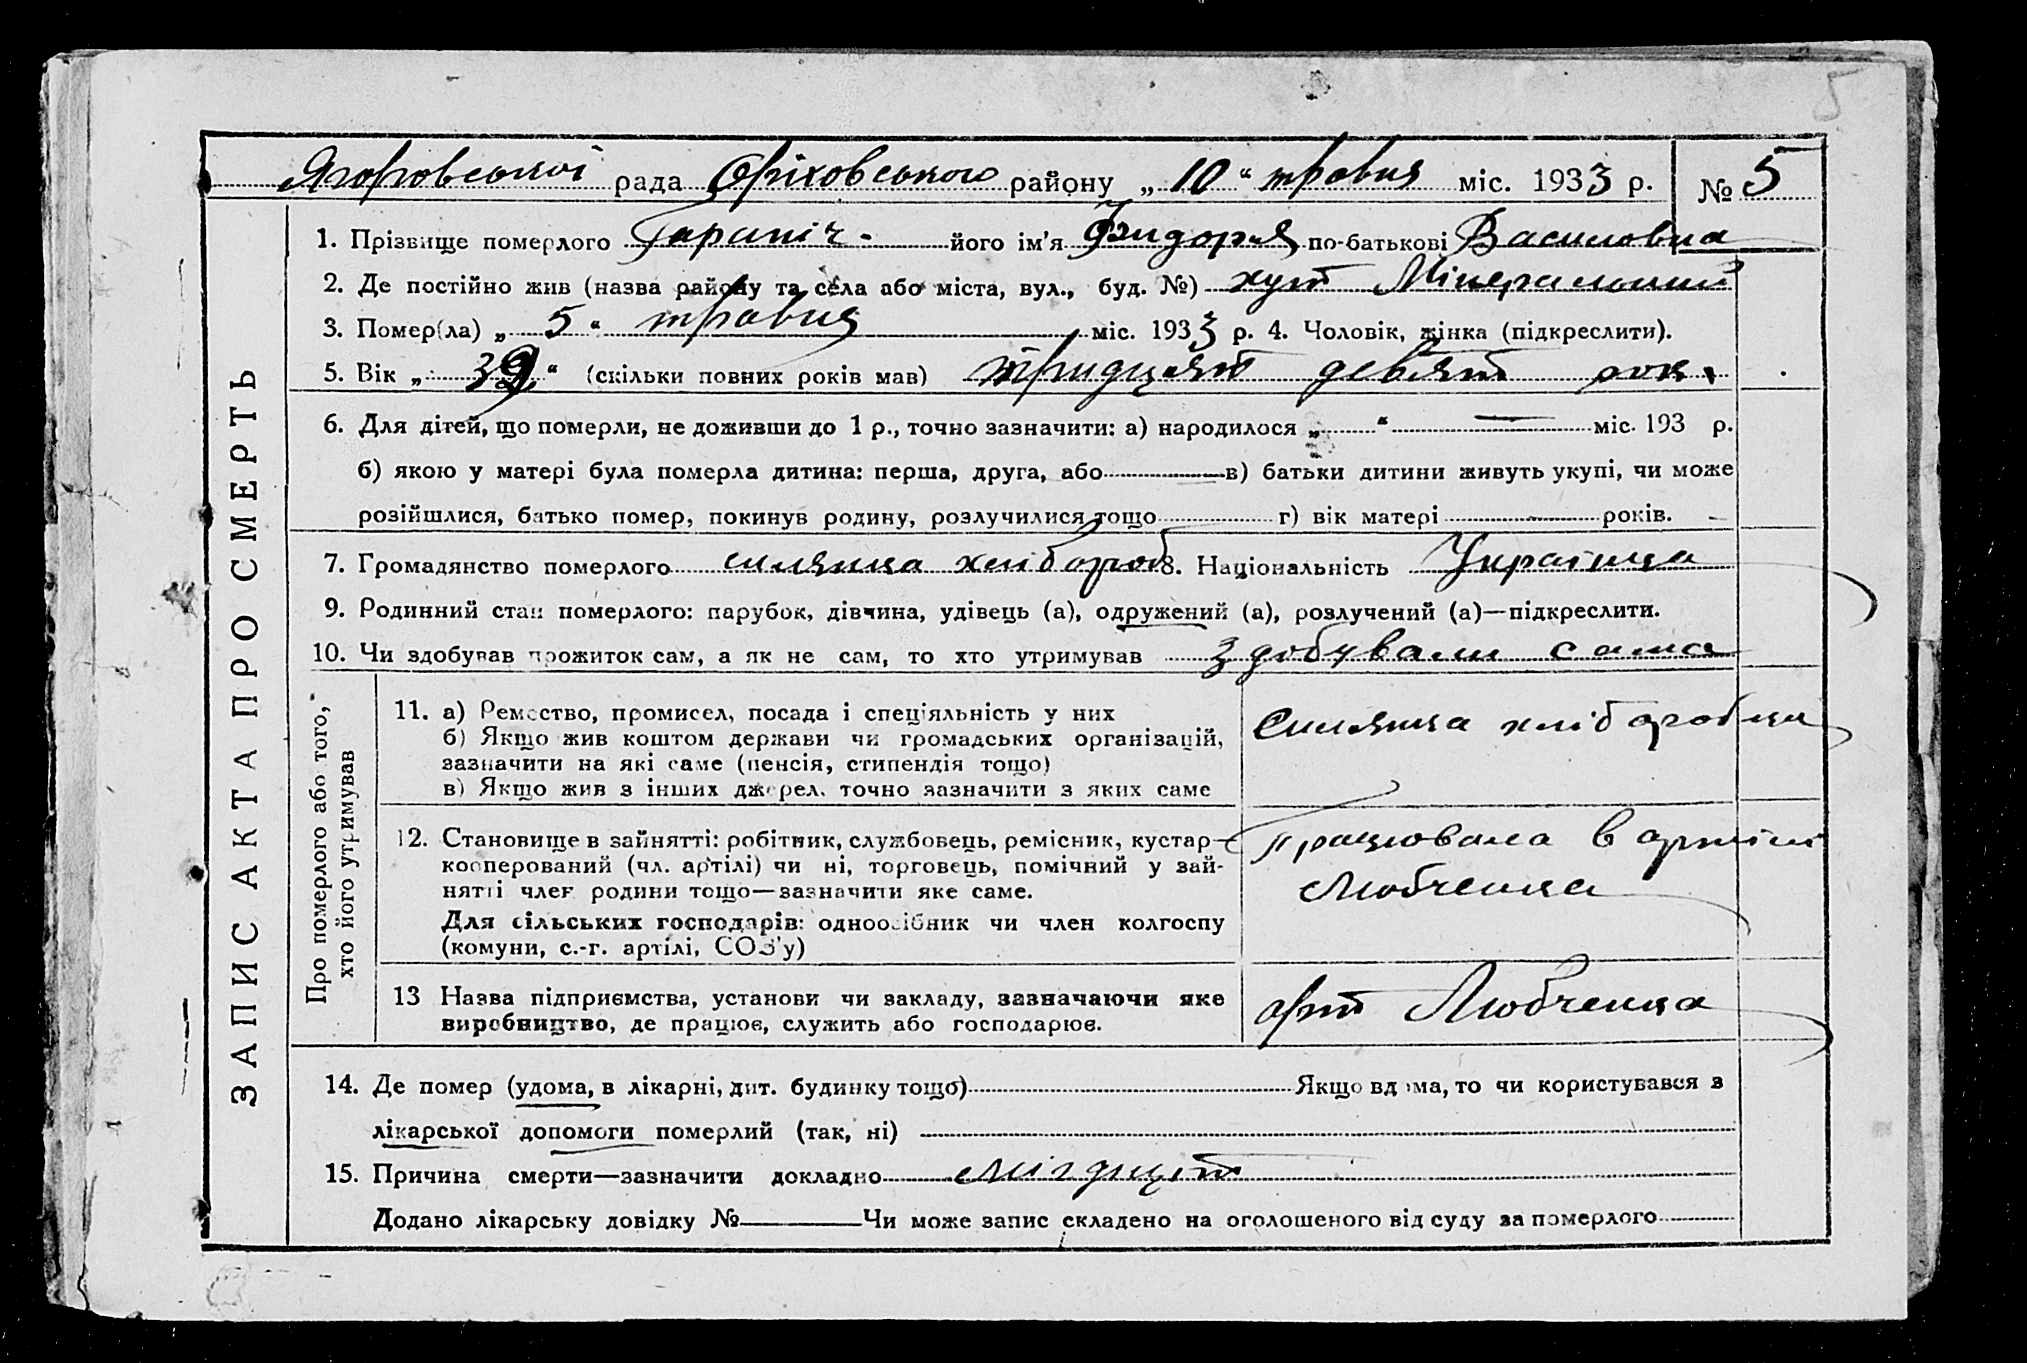 5
рада Оріховського району „ 10 “ травня міс. 1933 р. № 5
1. Прізвище померлого його ім'я по-батькові Василовна
2. Де постійно жив (назва району та села або міста, вул., буд. №) хут
3. Помер(ла) „ 5 “ травня міс. 1933 р. 4. Чоловік, жінка (підкреслити).
5. Вік „ 39 “ (скільки повних років мав) тридцят девят рок.
6. Для дітей, що померли, не доживши до 1 р., точно зазначити: а) народилося „ “ — міс. 193 р.
б) якою у матері була померла дитина: перша, друга, або — в) батьки дитини живуть укупі, чи може
розійшлися, батько помер, покинув родину, розлучилися тощо г) вік матері — років. —
7. Громадянство померлого силянка хлібороб 8. Національність Українка
9. Родинний стан померлого: парубок, дівчина, удівець (а), одружений (а), розлучений (а)—підкреслити.
10. Чи здобував прожиток сам, а як не сам, то хто утримував здобували сама
ЗАПИС АКТА ПРО СМЕРТЬ
Про померлого або того,
хто його утримував
11. а) Ремество, промисел, посада і спец'яльність у них
б) Якщо жив коштом держави чи громадських організацій,
зазначити на які саме (пенсія, стипендія тощо)
в) Якщо жив з інших джерел, точно зазначити з яких саме
Силянка
12. Становище в зайнятті: робітник, службовець, ремісник, кустар—
кооперований (чл. артілі) чи ні, торговець, помічний у зай-
нятті член родини тощо—зазначити яке саме.
Для сільських господарів: одноосібник чи член колгоспу
(комуни, с.-г. артілі, СОЗ'у)
працювала в артілі
Любченка
13 Назва підприємства, установи чи закладу, зазначаючи яке
виробництво, де працює, служить або господарює.
арт Любченка
14. Де помер (удома, в лікарні, дит. будинку тощо) Якщо вдома, то чи користувався з
лікарської допомоги померлий (так, ні)
15. Причина смерти—зазначити докладно
Додано лікарську довідку № — Чи може запис складено на оголошеного від суду за померлого